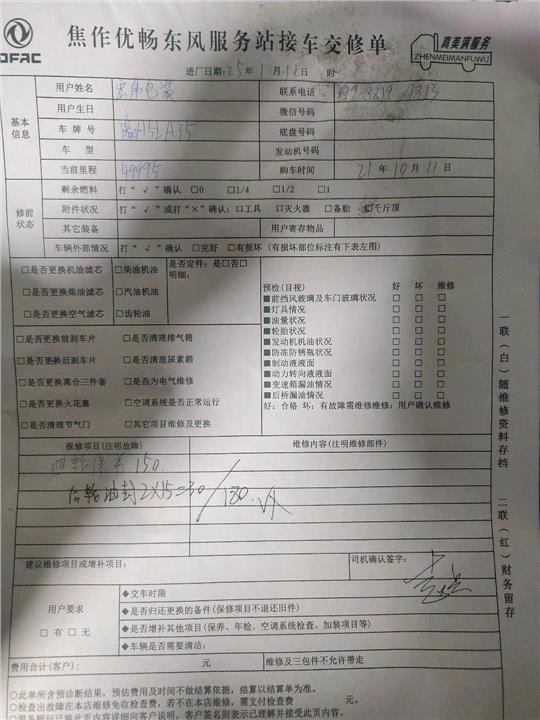 DFAC
焦作优畅东风服务站接车交修单
真美满服务
ZHENMEIMANFUWU
进厂日期:25年1月11日 时
基本信息
用户姓名 联系电话
用户生日 微信号码
车牌号 豫H5LA35 底盘号码
车型 发动机号码
当前里程 49995 购车时间 21年10月11日
修前状态
剩余燃料 打“√”确认 □0 □1/4 □1/2 □1
附件状况 打“√”或打“×”确认:□工具 □灭火器 □备胎 □千斤顶
其它装备 用户寄存物品
车辆外部情况 打“√”确认 □完好 □有损坏(有损坏部位标注有下表左图)
□是否更换机油滤芯 □柴油机油 是否定件:是□否□
明细:
□是否更换柴油滤芯 □汽油机油
□是否更换空气滤芯 □齿轮油
□是否更换前刹车片 □是否清理排气筒
□是否更换后刹车片 □是否清理尿素箱
□是否更换离合三件套 □是否为电气维修
□是否更换火花塞 □空调系统是否正常运行
□是否清理节气门 □其它项目维修及更换
预检(目视) 好 坏 维修
■前挡风玻璃及车门玻璃状况 □ □ □
■灯具情况 □ □ □
■油量状况 □ □ □
■轮胎状况 □ □ □
■发动机机油状况 □ □ □
■防冻防锈瓶状况 □ □ □
■制动液液面 □ □ □
■动力转向液液面 □ □ □
■变速箱漏油情况 □ □ □
■后桥漏油情况 □ □ □
好:合格 坏:有故障需维修维修:用户确认维修
报修项目(注明故障) 维修内容(注明维修部件)
四轮保养 150.
后轮油封2X15=30
180.
建议维修项目或增补项目: 司机确认签字:
用户要求
□有□无
◆交车时限
◆是否归还更换的备件(保修项目不退还旧件)
◆是否增补其他项目(保养、年检、空调系统检查、加装项目等)
◆车辆是否需要清洁:
费用合计(客户): 元 维修及三包件不允许带走
○此单所含预诊断结果,预估费用及时间不做结算依据,结算以结算单为准。
○检查出故障在本店维修免收检查费,若不在本店维修,需支付检查费 元。
一联(白)随维修资料存档
二联(红)财务留存